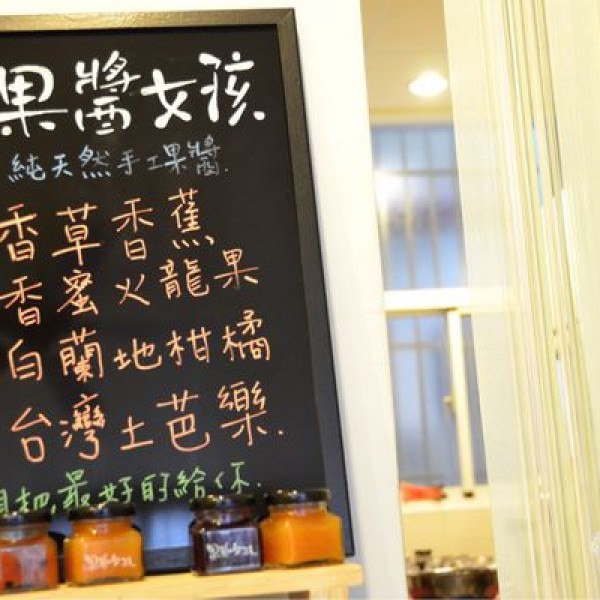 果醬女孩
純天然手工果醬.
香草香蕉
香蜜火龍果
白蘭地柑橘
台灣土芭樂.
把最好的給你.